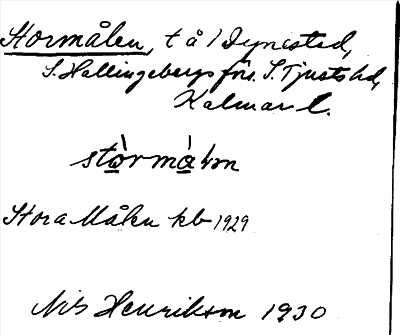 Stormålen, t å 1 Dynestad,
S. Hallingebergs förs. S. Tjusts hd,
Kalmar l.
stòrmà
Stora Målen kb 1929
Nils Henrikson 1930